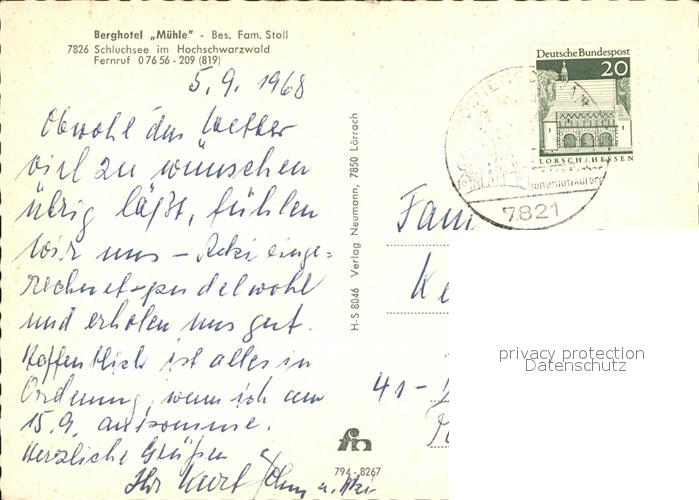 Berghotel „Mühle" - Bes. Fam. Stoll
7826 Schluchsee im Hochschwarzwald
Fernruf 0 76 56 - 209 (819)
5.9.1968
Obwohl das Wetter
viel zu wünschen
übrig läßt, fühlen
wir uns – Acki einge=
rechnet – pudelwohl
und erholen uns gut.
Hoffentlich ist alles in
Ordnung, wenn ich am
15.9. ankomme.
Herzliche Grüßen
Ihr Kurt
H-S 8046 Verlag Neumann, 7850 Lörrach
794 - 8267
Deutsche Bundespost
20
LORSCH/HESSEN
7821
Fam
Ke
41 -
privacy protection
Datenschutz